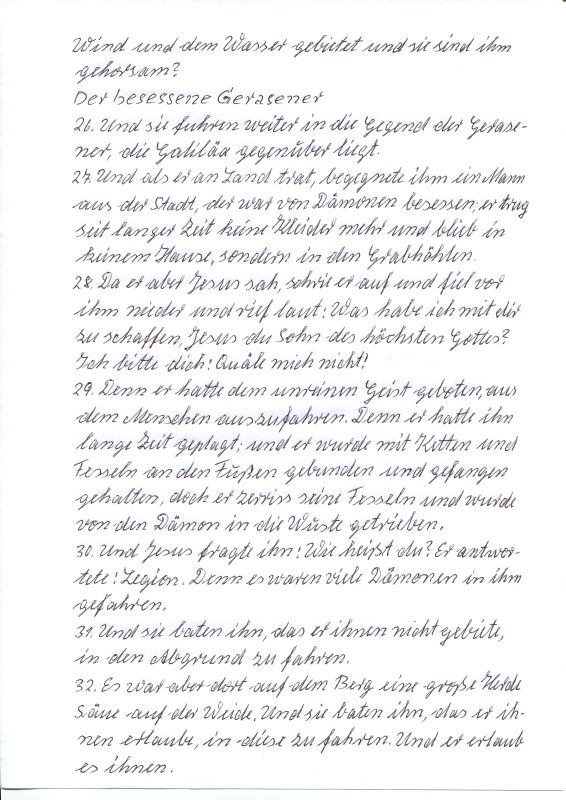 Wind und dem Wasser gebietet und sie sind ihm
gehorsam?
Der besessene Gerasener
26. Und sie fuhren weiter in die Gegend der Gerase-
ner, die Galiläa gegenüber liegt.
27. Und als er an Land trat, begegnete ihm ein Mann
aus der Stadt, der war von Dämonen besessen; er trug
seit langer Zeit keine Kleider mehr und blieb in
keinem Hause, sondern in den Grabhöhlen.
28. Da er aber Jesus sah, schrie er auf und fiel vor
ihm nieder und rief laut: Was habe ich mit dir
zu schaffen, Jesus du Sohn des höchsten Gottes?
Ich bitte dich: Quäle mich nicht!
29. Denn er hatte dem unreinen Geist geboten, aus
dem Menschen auszufahren. Denn er hatte ihn
lange Zeit geplagt; und er wurde mit Ketten und
Fesseln an den Füßen gebunden und gefangen
gehalten, doch er zerriss seine Fesseln und wurde
von den Dämon in die Wüste getrieben.
30. Und Jesus fragte ihn: Wie heißt du? Er antwor-
tete: Legion. Denn es waren viele Dämonen in ihm
gefahren.
31. Und sie baten ihn, das er ihnen nicht gebiete,
in den Abgrund zu fahren.
32. Es war aber dort auf dem Berg eine große Herde
Säue auf der Weide. Und sie baten ihn, das er ih-
nen erlaube, in diese zu fahren. Und er erlaub
es ihnen.